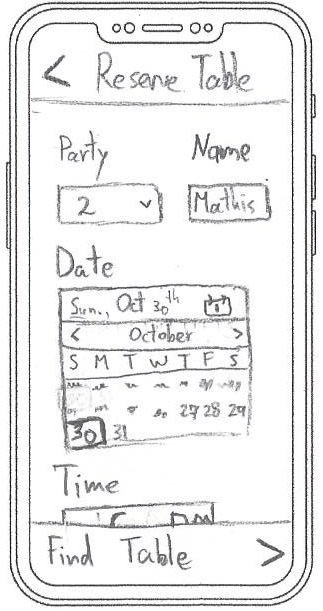 < Reserve Table
Party Name
2 Mathis
Date
Sun., Oct 30th
< October >
S M T W T F S
27 28 29
30 31
Time
Find Table >